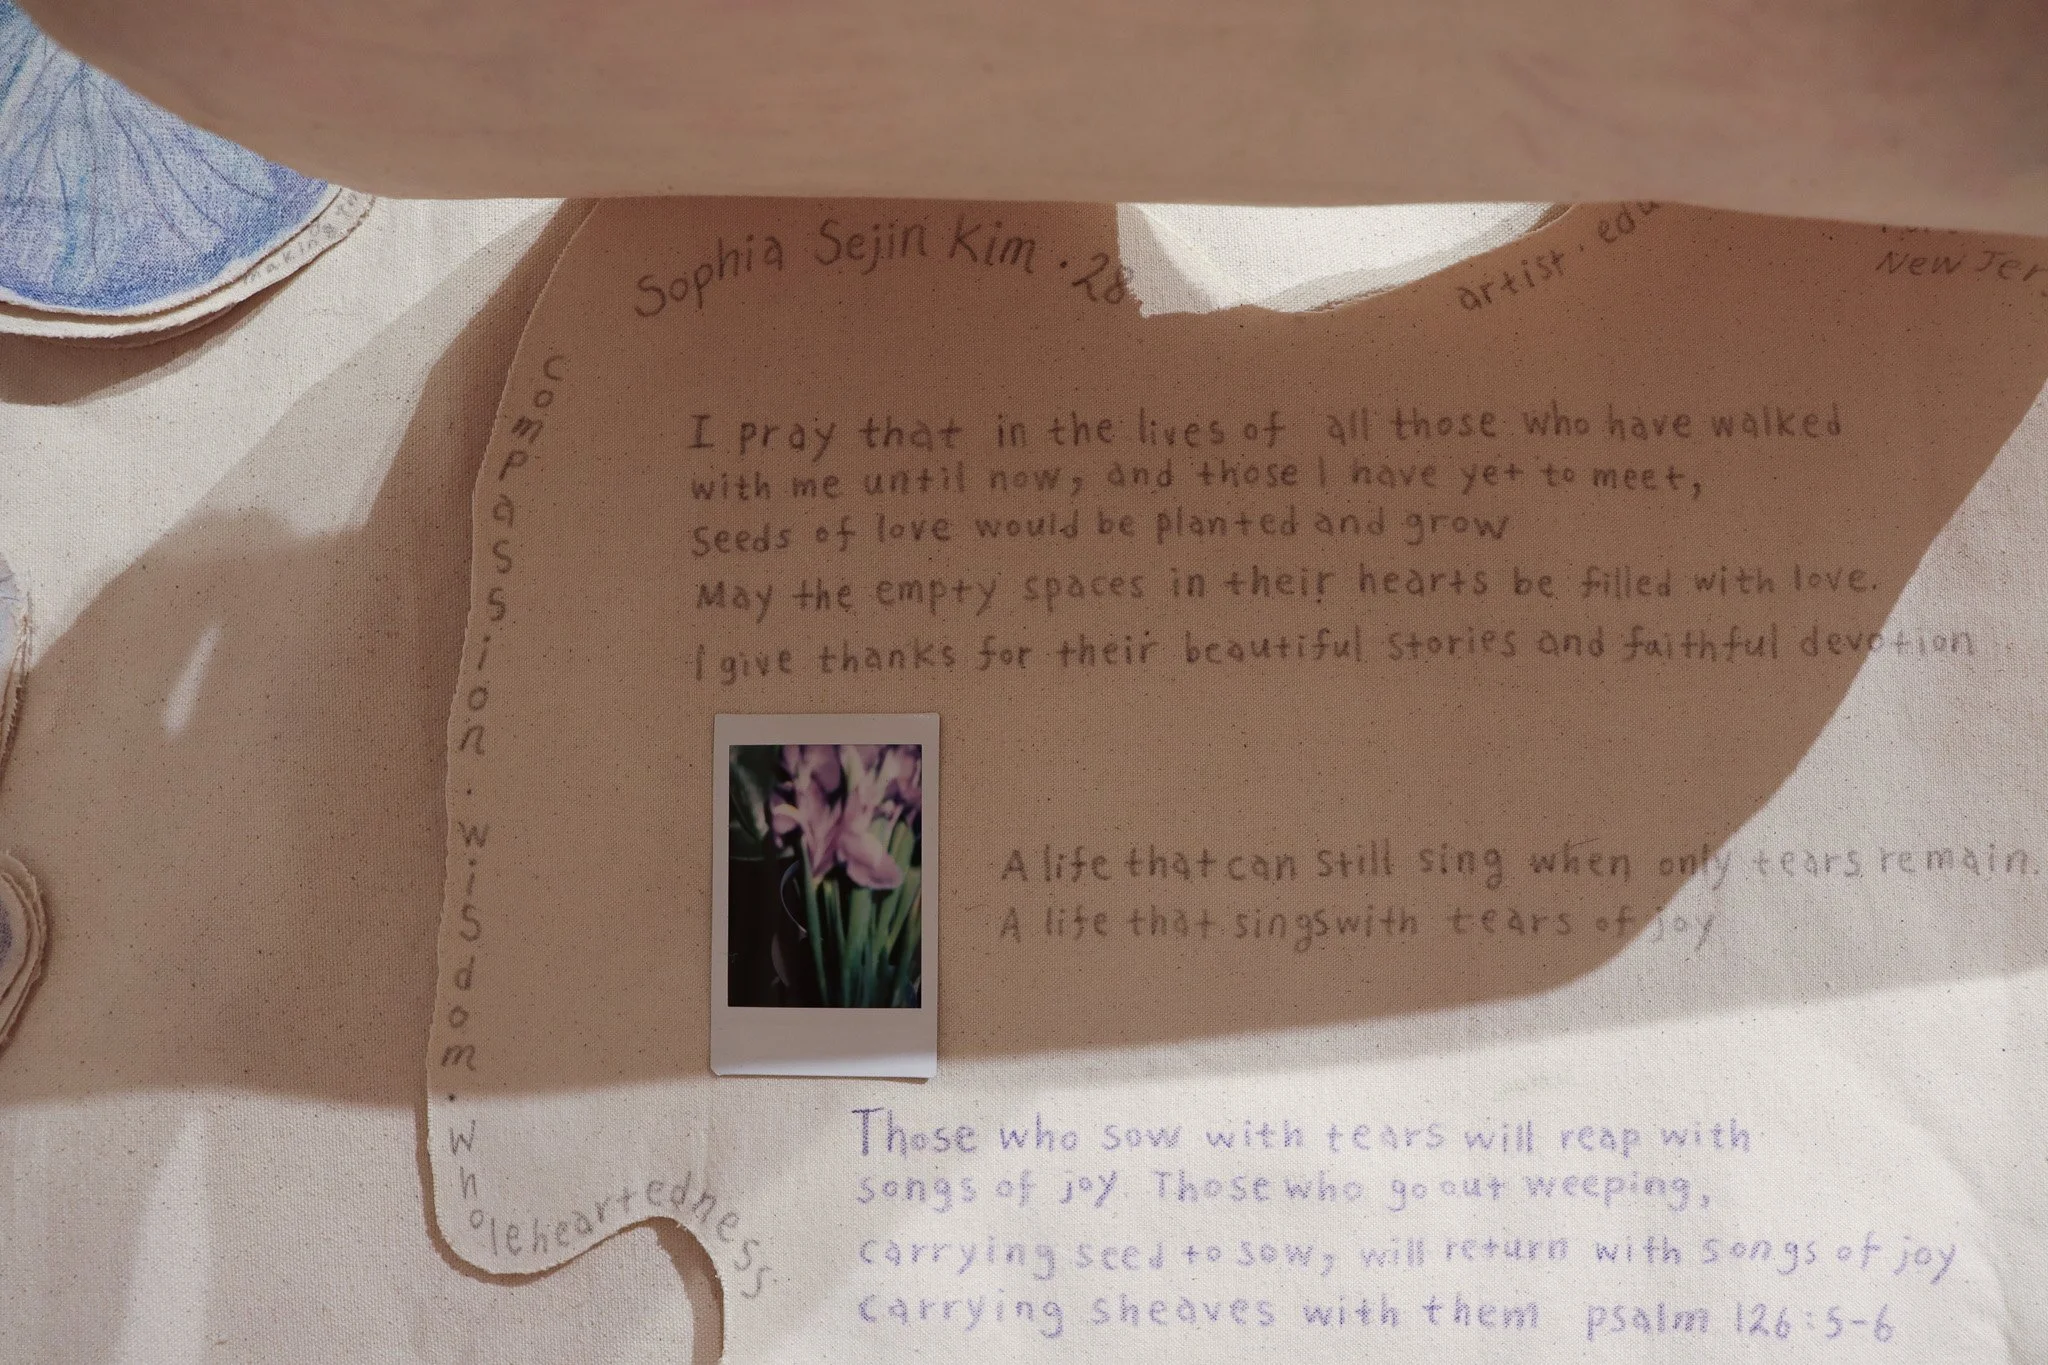 making to
Sophia Sejin Kim · 28
artist · edu
New Jer
compassion · wisdom · wholeheartedness
I pray that in the lives of all those who have walked
with me until now, and those I have yet to meet,
seeds of love would be planted and grow
May the empty spaces in their hearts be filled with love.
I give thanks for their beautiful stories and faithful devotion
A life that can still sing when only tears remain.
A life that sings with tears of joy
Those who sow with tears will reap with
songs of joy. Those who go out weeping,
carrying seed to sow, will return with songs of joy
carrying sheaves with them psalm 126:5-6